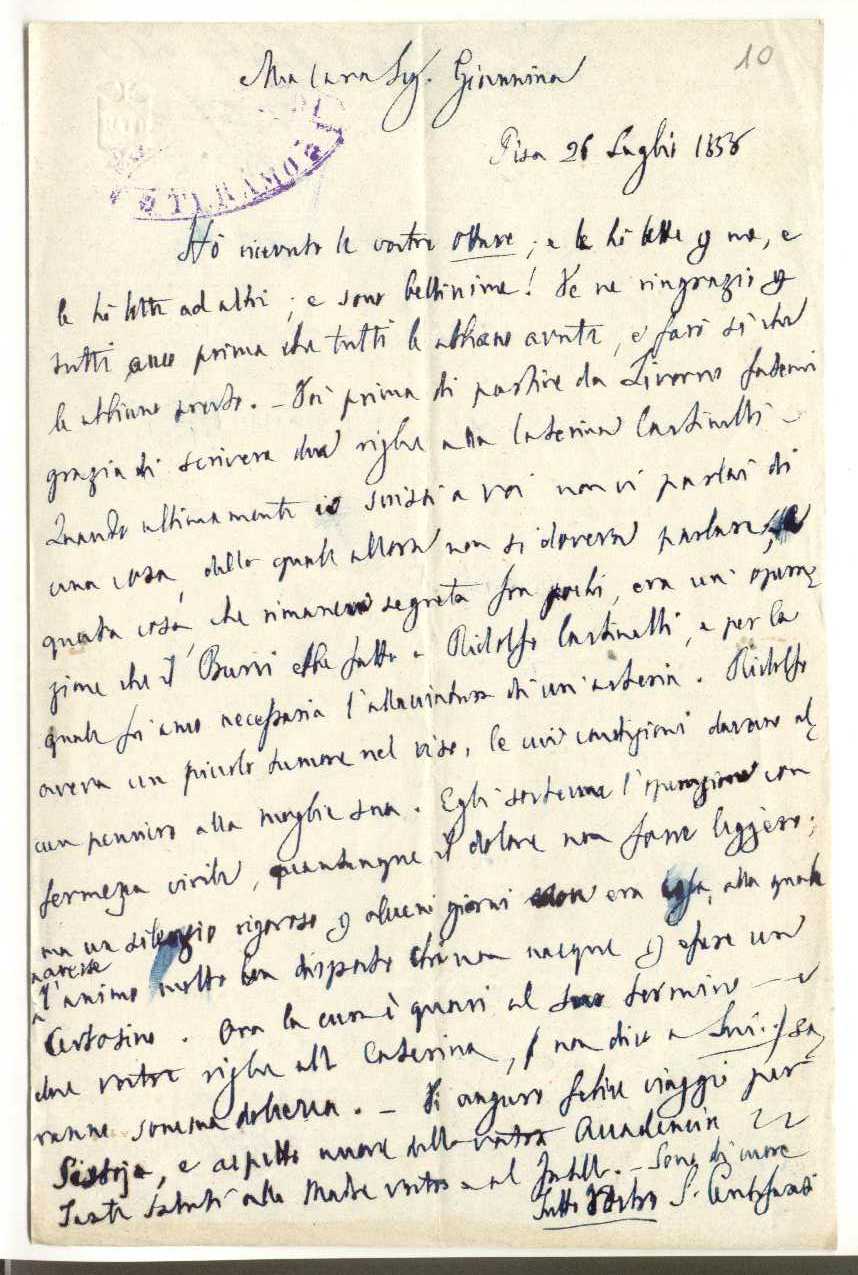 10
Mia cara Sig. Giannina
TERAMO
Pisa 26 Luglio 1858
Hò ricevuto le vostre ottave; e le hò lette p me, e
le hò lette ad altri; e sono bellissime! Ve ne ringrazio p
tutti anco prima che tutti le abbiano avute, e farò sì che
le abbiano presto. – Voi prima di partire da Livorno fatemi
grazia di scrivere due righe alla Caterina Castinelli –
Quando ultimamente io scrissi a voi non vi parlai di
una cosa, della quale allora non si doveva parlare;
questa cosa, che rimaneva segreta fra pochi, era un' opera-
zione che il Burci ebbe fatto a Ridolfo Castinelli, e per la
quale fù anco necessaria l'allacciatura di un'arteria. Ridolfo
aveva un piccolo tumore nel viso, le cui condizioni davano al-
cun pensiero alla moglie sua. Egli sostenne l'operazione con
fermezza virile, quantunque il dolore non fosse leggero;
ma un silenzio rigoroso p alcuni giorni non era cosa, alla quale
avesse
l'animo molto ben disposto chi non nacque p essere un
Certosino. Ora la cura è quasi al suo termine — e
due vostre righe alla Caterina, (non dico a Lui..) sa-
ranno somma dolcezza. – Vi auguro felice viaggio per
Pistoja, e aspetto nuove della vostra Accademia
Tanti saluti alla Madre vostra e al fratello. – Sono di cuore
Tutto Vostro S. Centofanti